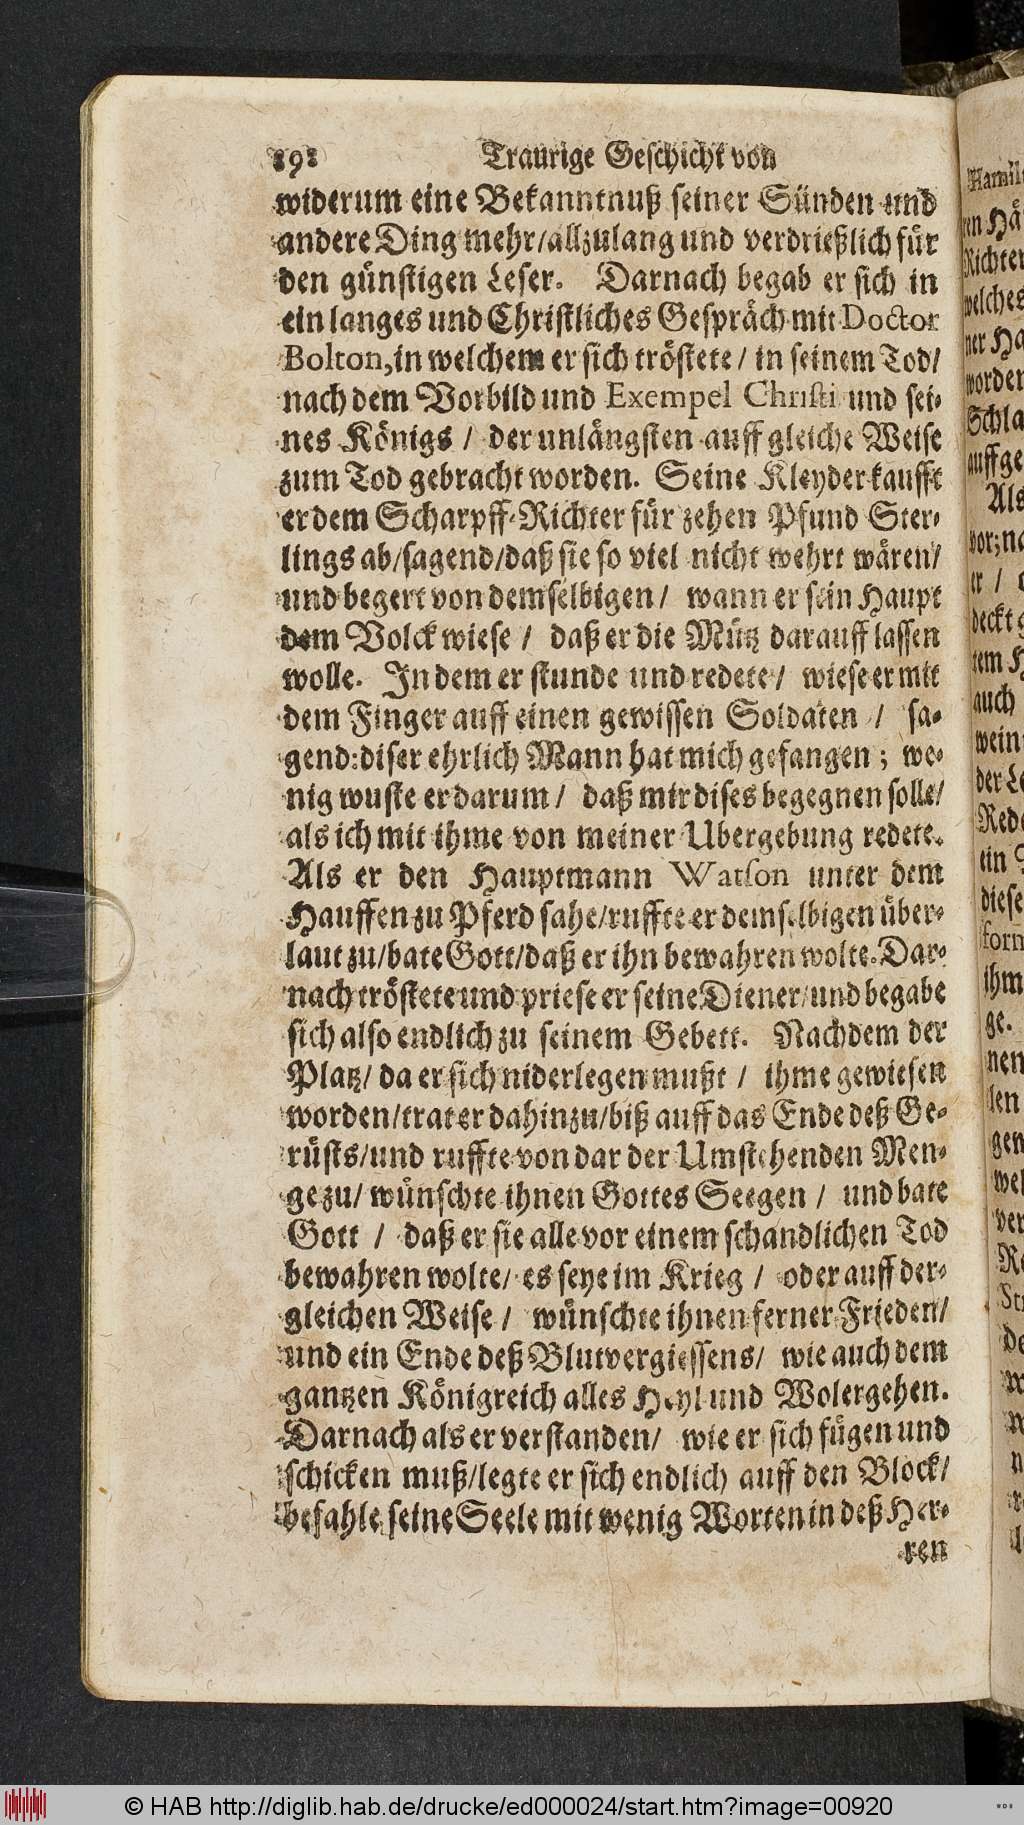 Traurige Geschicht von
widerum eine Bekanntnuß seiner Sünden und
andere Ding mehr/allzulang und verdrießlich für
den günstigen Leser. Darnach begab er sich in
ein langes und Christliches Gespräch mit Doctor
Bolton, in welchem er sich tröstete / in seinem Tod/
nach dem Vorbild und Exempel Christi und sei-
nes Königs / der unlängsten auff gleiche Weise
zum Tod gebracht worden. Seine Kleyder kaufft
er dem Scharpff-Richter für zehen Pfund Ster-
lings ab/sagend/daß sie so viel nicht wehrt wären/
und begert von demselbigen / wann er sein Haupt
dem Volck wiese / daß er die Mütz darauff lassen
wolle. In dem er stunde und redete / wiese er mit
dem Finger auff einen gewissen Soldaten / sa-
gend: diser ehrlich Mann hat mich gefangen; we-
nig wuste er darum / daß mir dises begegnen solle/
als ich mit ihme von meiner Ubergebung redete.
Als er den Hauptmann Watson unter dem
Hauffen zu Pferd sahe/ruffte er demselbigen über-
laut zu/bate Gott/daß er ihn bewahren wolte. Dar-
nach tröstete und priese er seine Diener/und begabe
sich also endlich zu seinem Gebett. Nachdem der
Platz/ da er sich niderlegen mußt / ihme gewiesen
worden/trat er dahinzu/biß auff das Ende deß Ge-
rüsts/und ruffte von dar der Umstehenden Men-
ge zu/ wünschte ihnen Gottes Seegen / und bate
Gott / daß er sie alle vor einem schandlichen Tod
bewahren wolte/ es seye im Krieg / oder auff der-
gleichen Weise / wünschte ihnen ferner Frieden/
und ein Ende deß Blutvergiessens/ wie auch dem
gantzen Königreich alles Heyl und Wolergehen.
Darnach als er verstanden/ wie er sich fügen und
schicken muß/legte er sich endlich auff den Block/
befahle seine Seele mit wenig Worten in deß Her-
ren
© HAB http://diglib.hab.de/drucke/ed000024/start.htm?image=00920